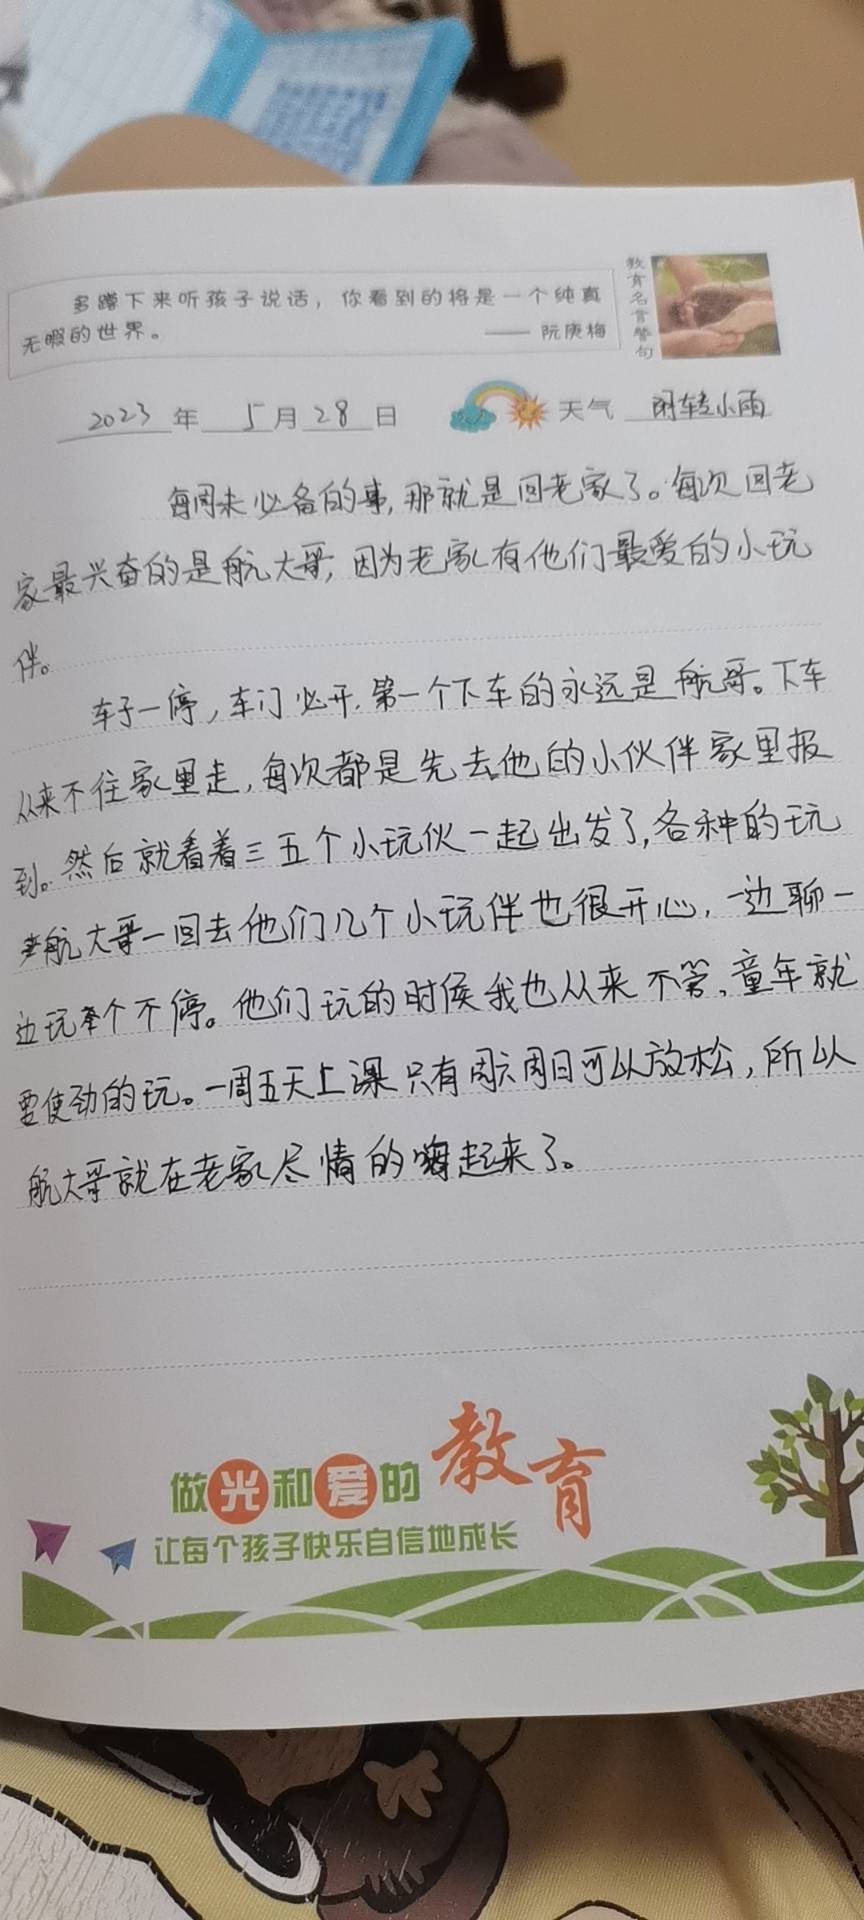 多蹲下来听孩子说话，你看到的将是一个纯真
无暇的世界。 —— 阮庚梅
教育名言警句
2023年 5月28日 天气 阴转小雨
每周末必备的事，那就是回老家了。每次回老
家最兴奋的是航大哥，因为老家有他们最爱的小玩
伴。
车子一停，车门必开，第一个下车的永远是航哥。下车
从来不往家里走，每次都是先去他的小伙伴家里报
到。然后就看着三五个小玩伙一起出发了，各种的玩
航大哥一回去他们几个小玩伴也很开心，一边聊一
边玩个不停。他们玩的时候我也从来不管，童年就
要使劲的玩。一周五天上课只有周六周日可以放松，所以
航大哥就在老家尽情的嗨起来了。
做光和爱的教育
让每个孩子快乐自信地成长